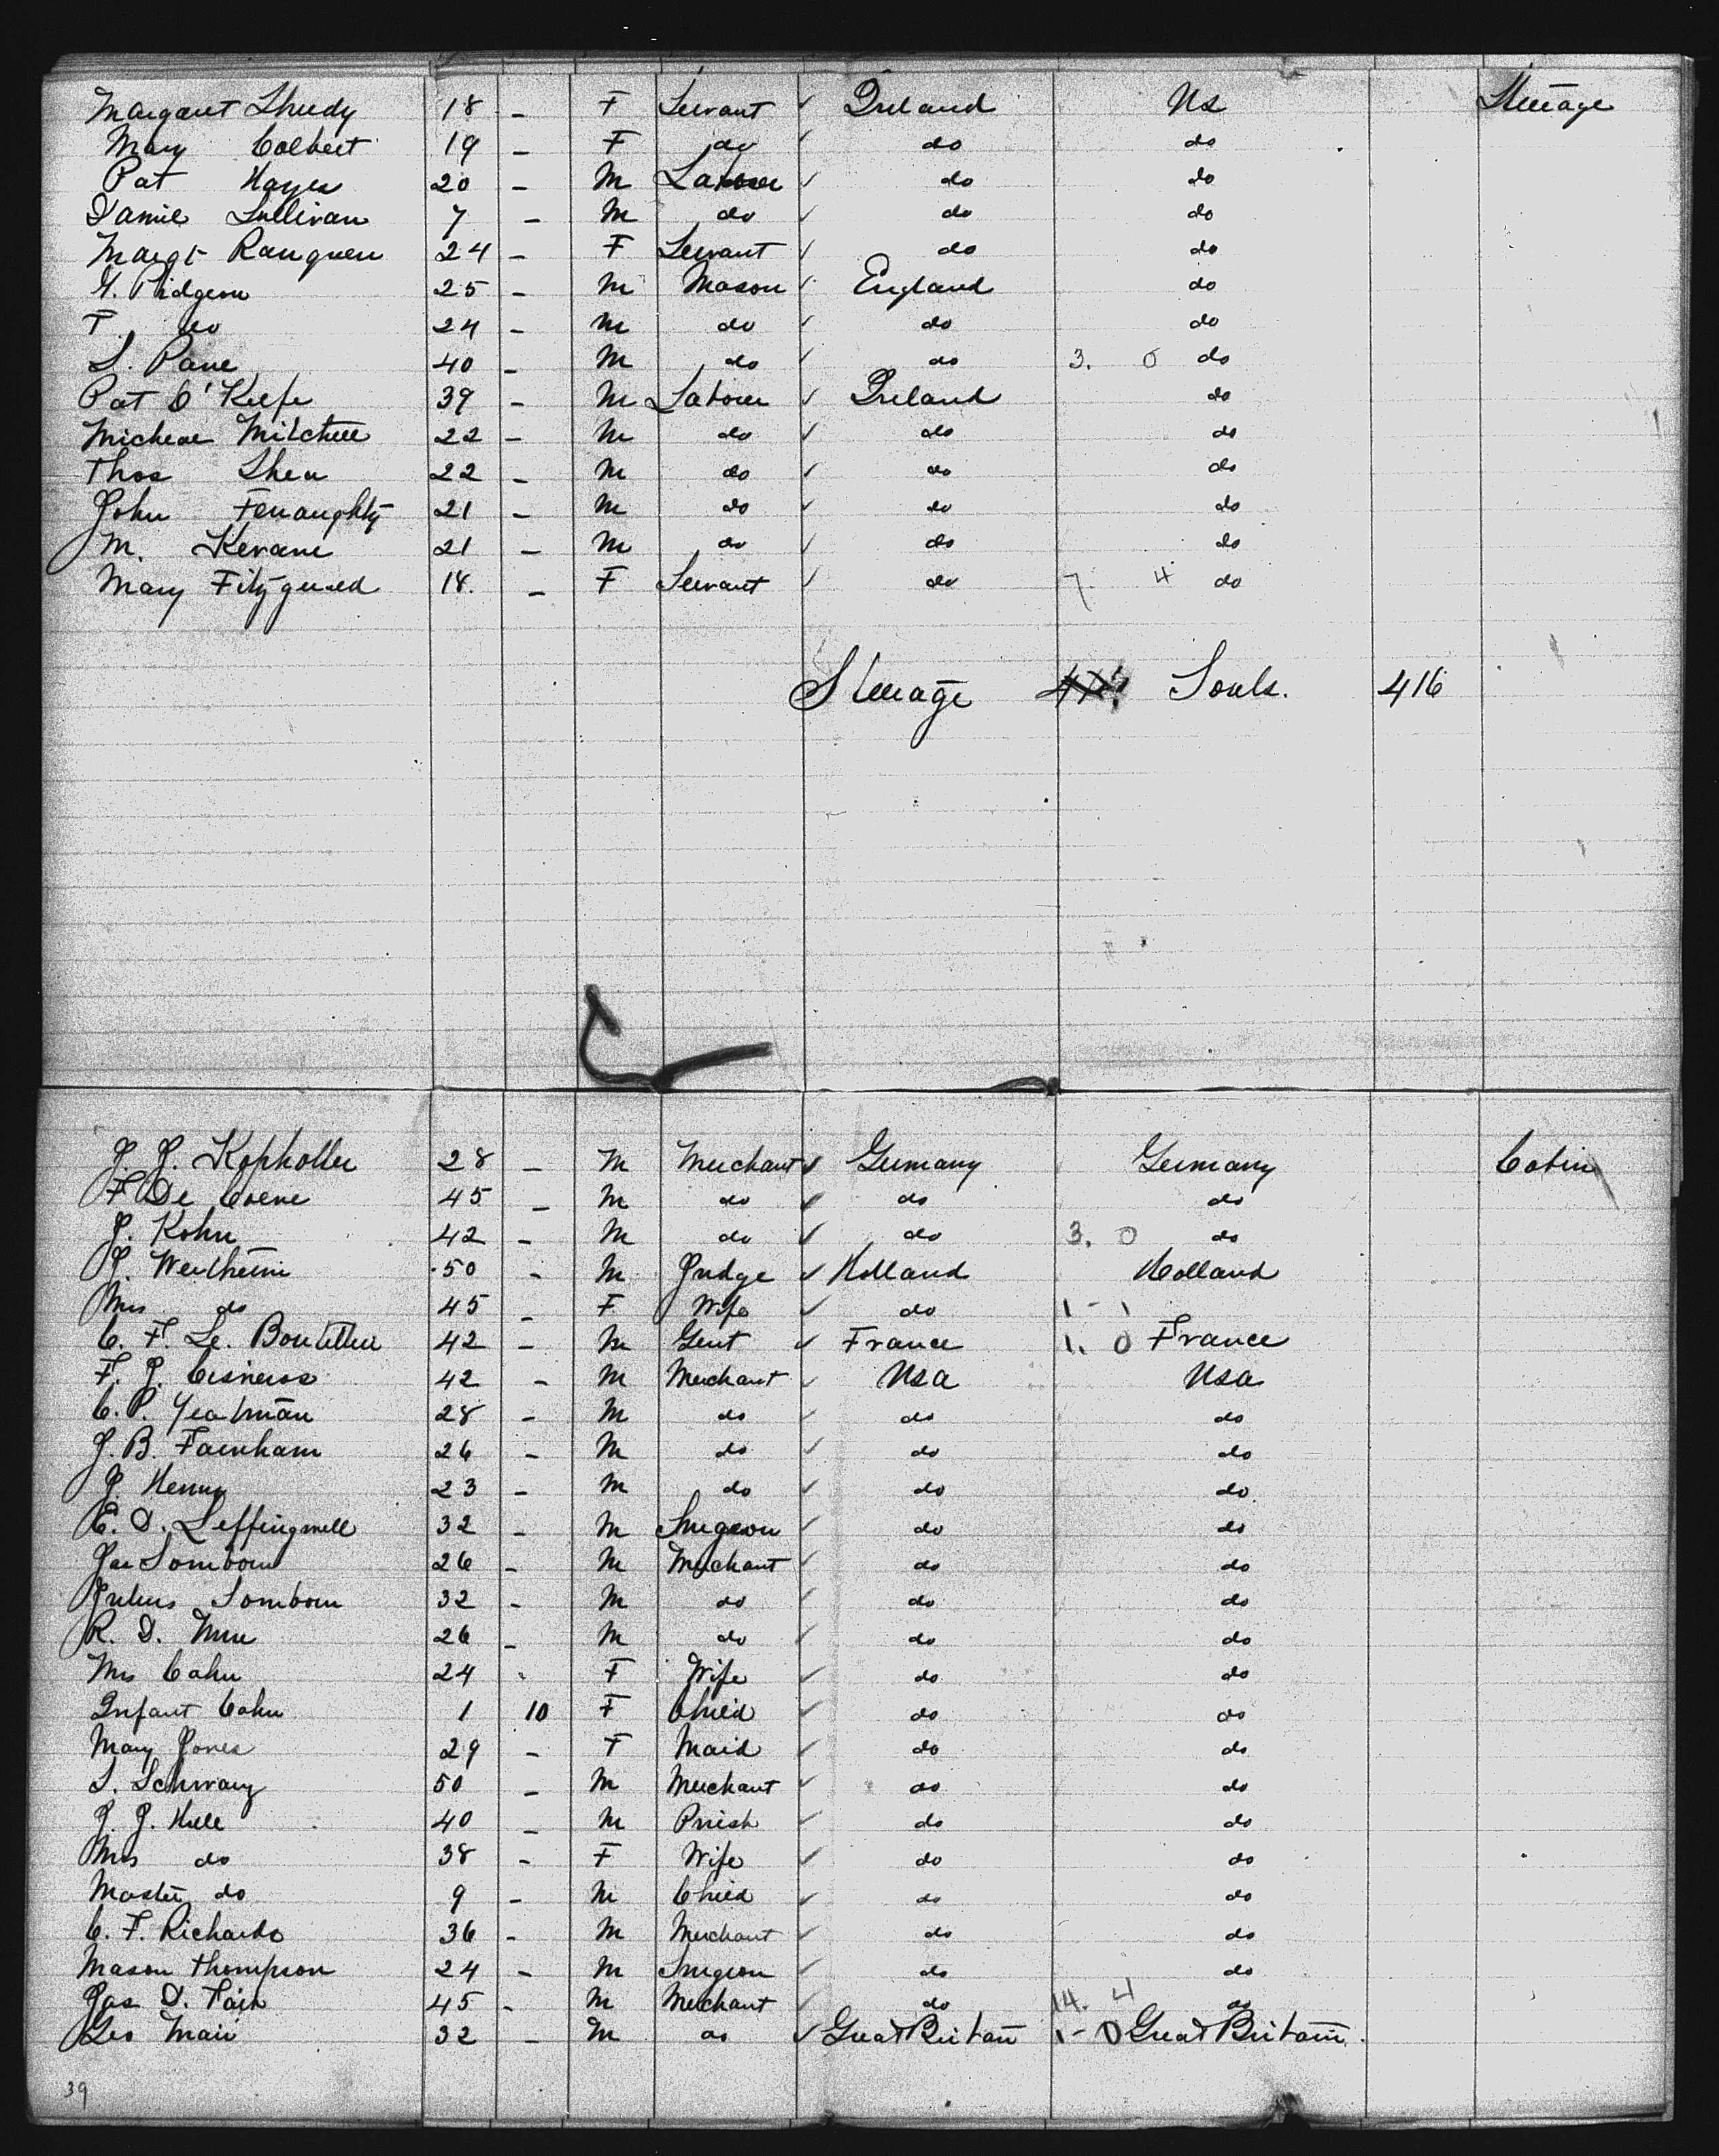 Margaret Sheedy 18 - F Servant ✓ Ireland US Steerage
Mary Colbert 19 - F do ✓ do do
Pat Hayes 20 - M Labour ✓ do do
Daniel Sullivan 7 - M do ✓ do do
Margt 24 - F Servant ✓ do do
Pidgeon 25 - M Mason ✓ England do
T. do 24 - M do ✓ do do
S. Pane 40 - M do ✓ do 3. 0 do
Pat O'Keefe 39 - M Labour ✓ Ireland do
Micheal Mitchell 22 - M do ✓ do do
Thos Shea 22 - M do ✓ do do
John Fenaughty 21 - M do ✓ do do
M. Kevane 21 - M do ✓ do do
Mary Fitzgerald 18. - F Servant ✓ do 7 4 do
Steerage Souls. 416
J. J. Kopholler 28 - M Merchant ✓ Germany Germany Cabin
F De Coene 45 - M do ✓ do do
J. Kohn 42 - M do ✓ do 3. 0 do
J. Wertheim 50 - M Judge ✓ Holland Holland
Mrs do 45 - F Wife ✓ do 1 - 1
C. F. Le. Boutillier 42 - M Gent ✓ France 1. 0 France
F. J. Cisneros 42 - M Merchant ✓ USA USA
C. P. Yeatman 28 - M do ✓ do do
J. B. Farnham 26 - M do ✓ do do
J. Henry 23 - M do ✓ do do
E. D. Leffingwell 32 - M Surgeon ✓ do do
Jas Sonborn 26 - M Merchant ✓ do do
Julius Sonborn 32 - M do ✓ do do
R. D. 26 - M do ✓ do do
Mrs Cahn 24 - F Wife ✓ do do
Infant Cahn 1 10 F Child ✓ do do
Mary Jones 29 - F Maid ✓ do do
S. Schwarz 50 - M Merchant ✓ do do
J. J. Hill 40 - M Priest ✓ do do
Mrs do 38 - F Wife ✓ do do
Master do 9 - M Child ✓ do do
C. F. Richards 36 - M Merchant ✓ do do
Mason Thompson 24 - M Surgeon ✓ do do
Jas D. 45 - M Merchant ✓ do 14. 4 do
Geo Mair 32 - M do ✓ Great Britain 1 - 0 Great Britain.
39